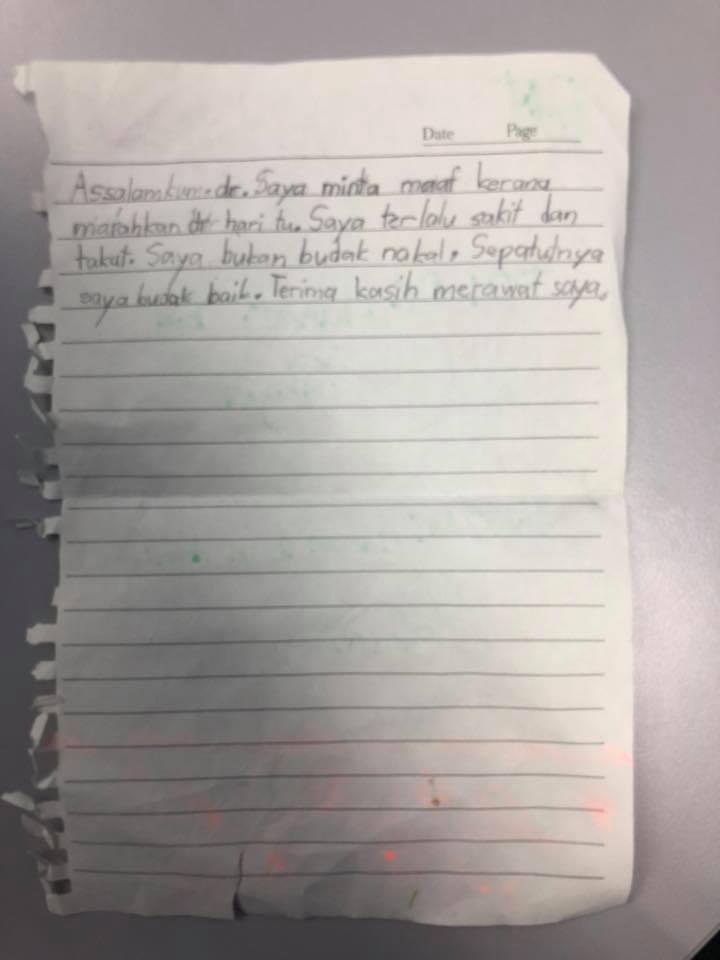 Date Page
Assalamkum.dr. Saya minta maaf kerana
marahkan dr hari tu. Saya terlalu sakit dan
takut. Saya bukan budak nakal, Sepatutnya
saya budak baik. Terima kasih merawat saya.